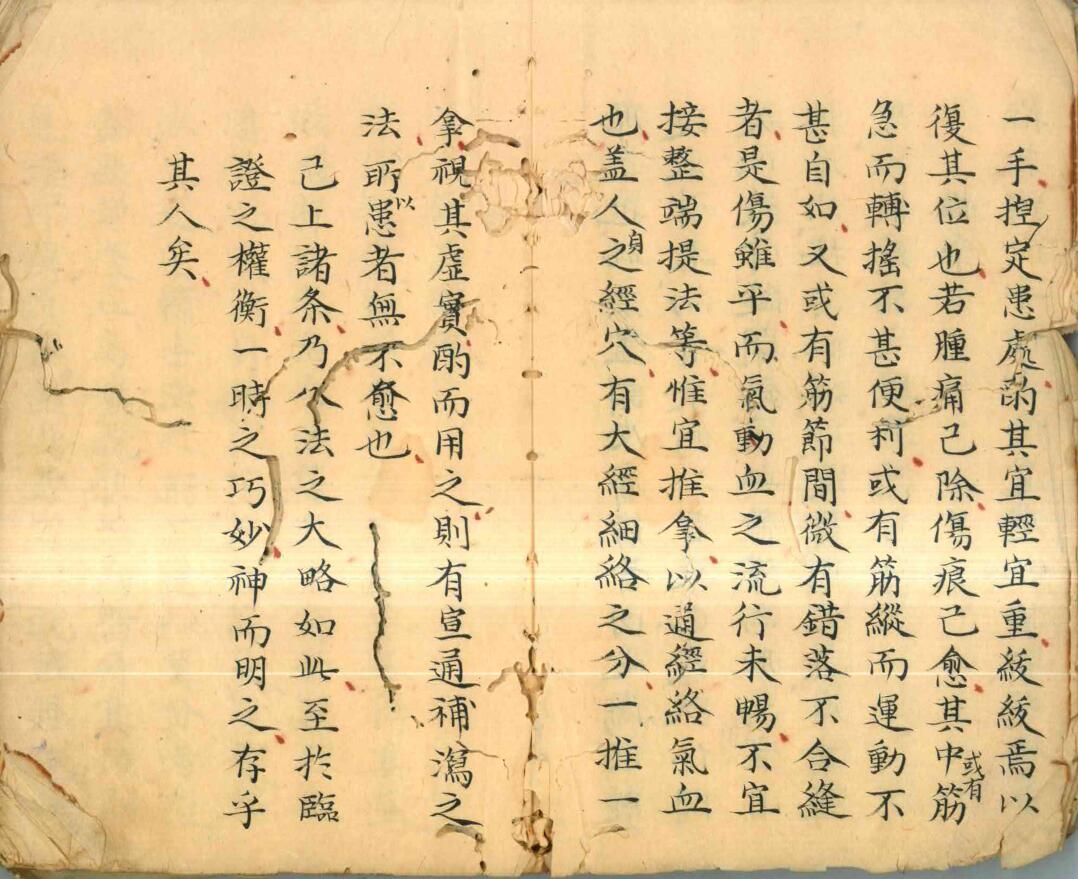 一手揑定患處酌其宜輕宜重緩緩焉以
復其位也若腫痛已除傷痕已愈其中或有筋
急而轉搖不甚便利或有筋縱而運動不
甚自如又或有筋節間微有錯落不合縫
者是傷雖平而氣動血之流行未暢不宜
接整端提法等惟宜推拿以通經絡氣血
也盖人身之經穴有大經細絡之分一推一
拿視其虛實酌而用之則有宣通補瀉之
法所以患者無不愈也
已上諸条乃八法之大略如此至於臨
證之權衡一時之巧妙神而明之存乎
其人矣